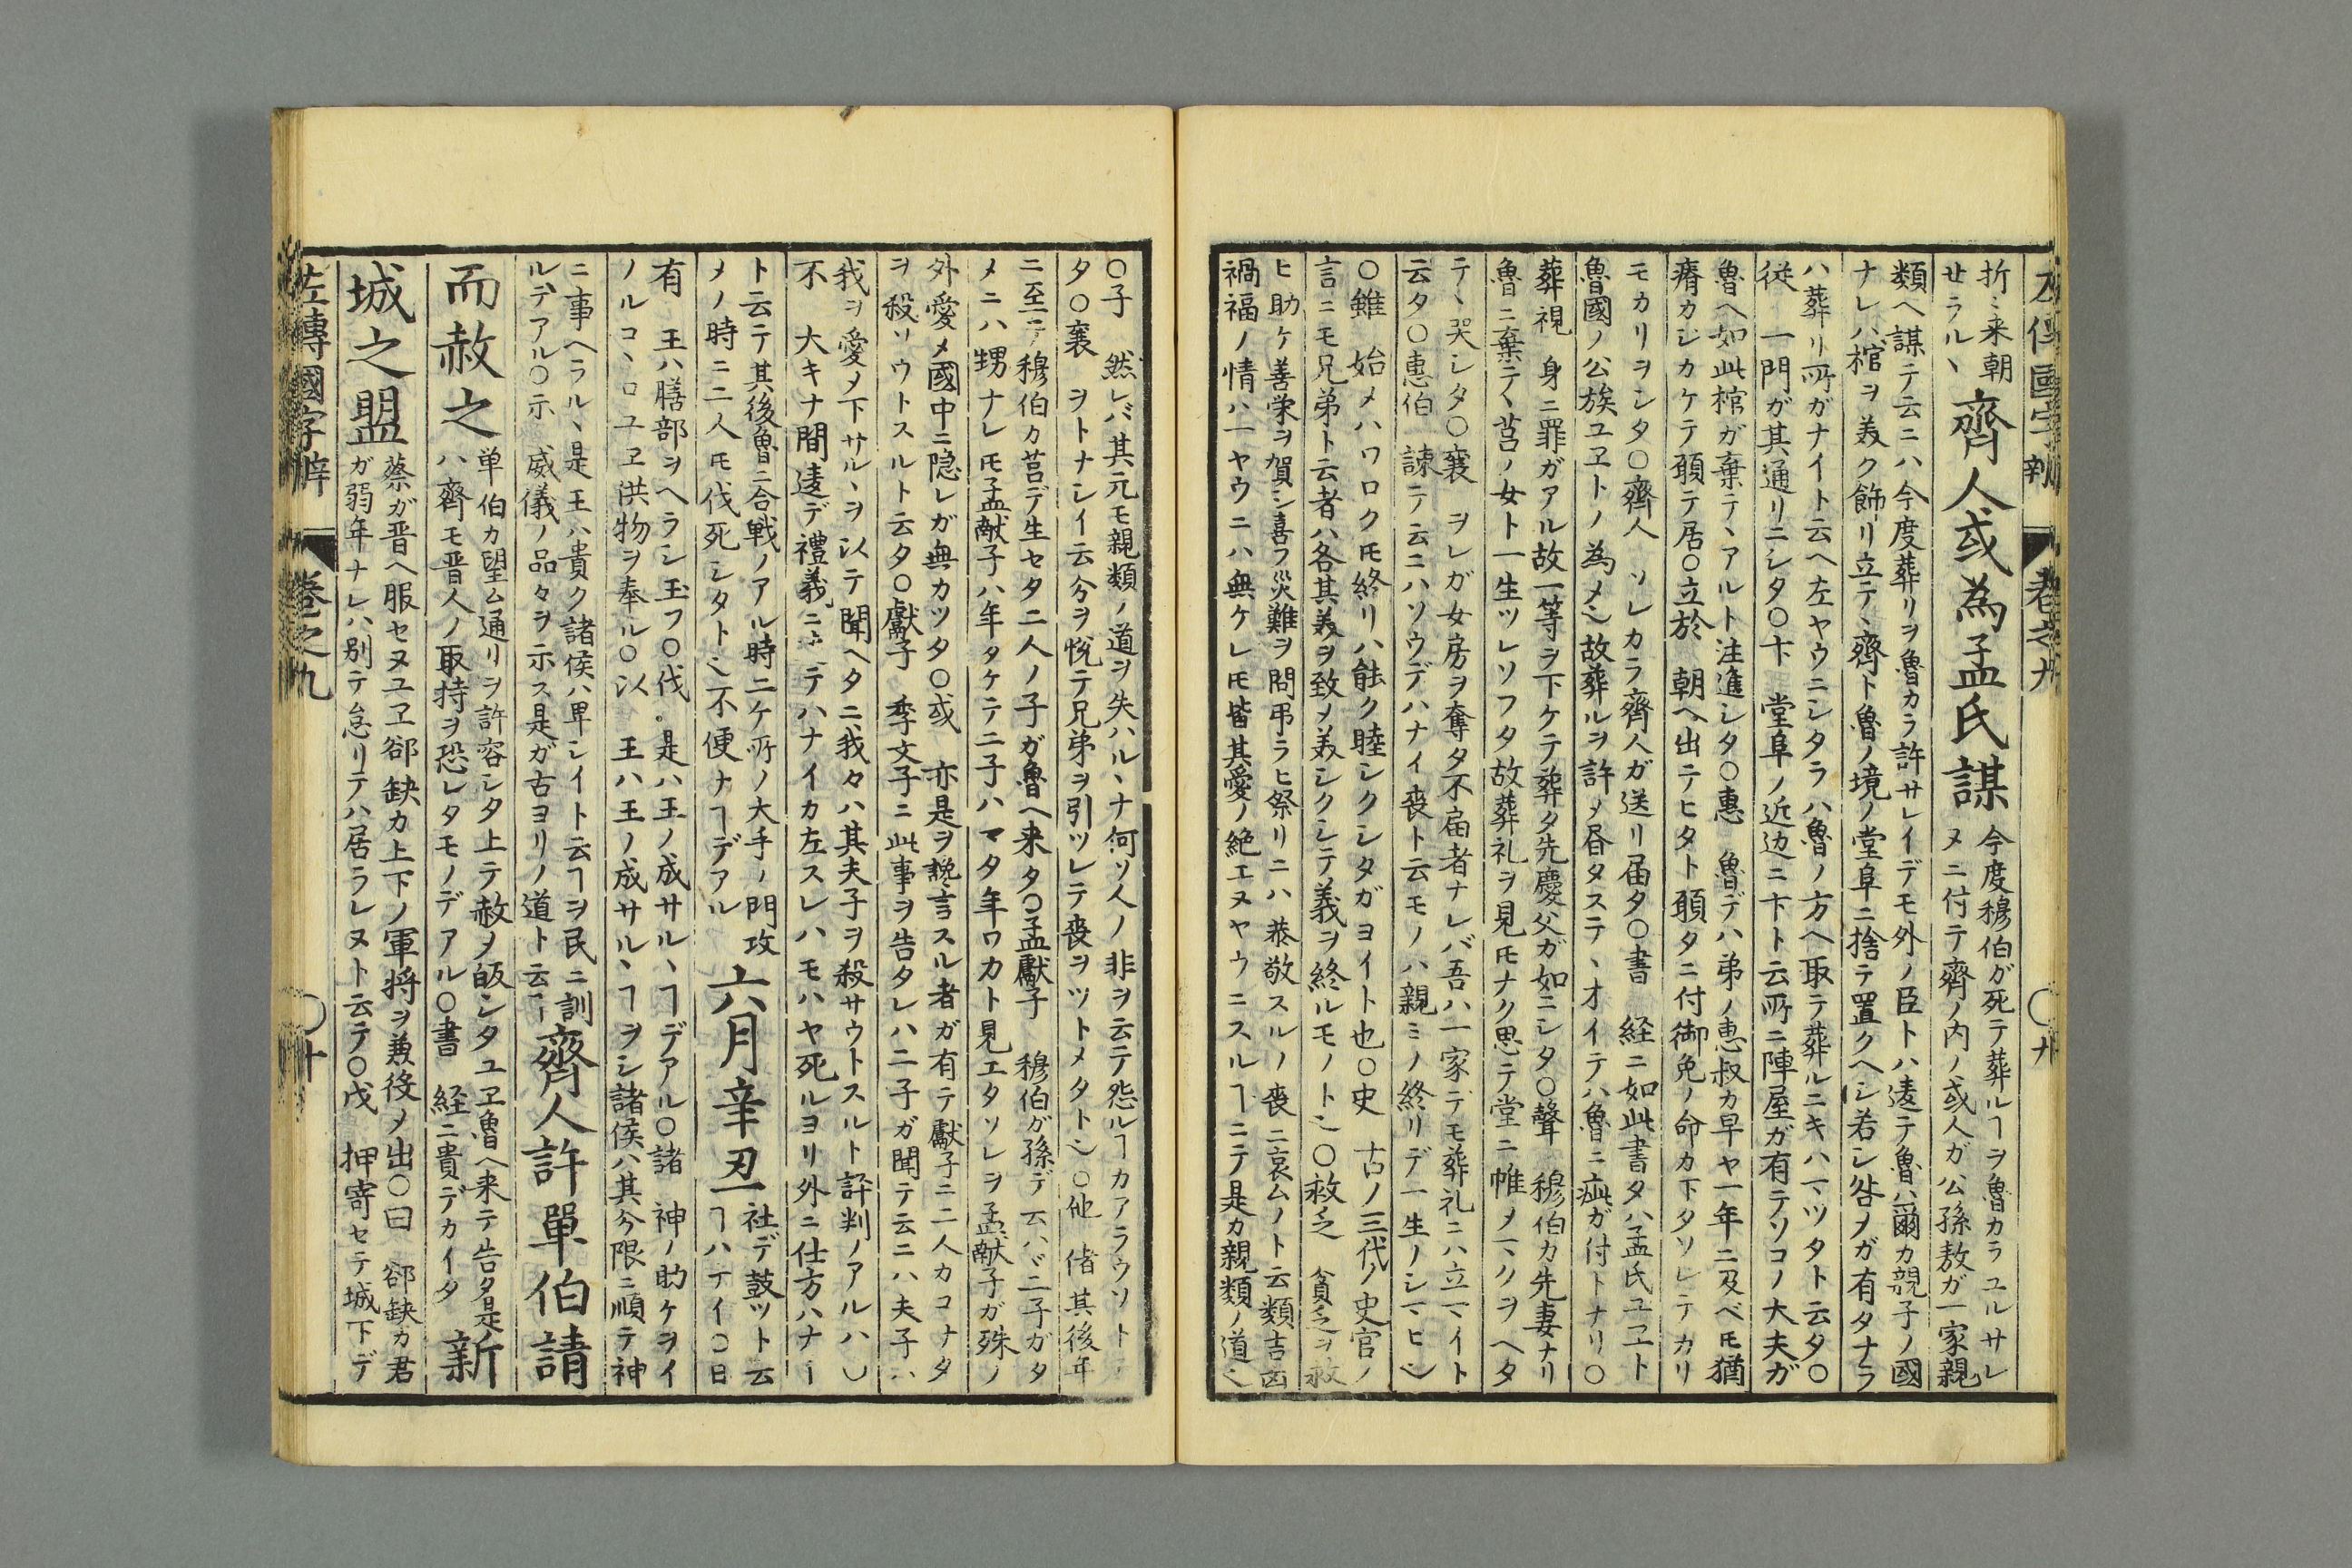 左傳國字辨 巻之九 〇九
折ニ来朝
せラル丶
齊人或為孟氏謀
今度穆伯が死テ葬ルヿヲ魯カラユルサレ
ヌニ付テ齊ノ内ノ或人ガ公孫敖ガ一家親
類ヘ謀テ云ニハ今度葬リヲ魯カラ許サレイデモ外ノ臣トハ違テ魯ハ爾カ親子ノ國
ナレハ棺ヲ美ク飾リ立テ丶齊ト魯ノ境ノ堂阜ニ捨テ置クヘシ若シ咎メガ有タナラ
ハ葬リ所ガナイト云ヘ左ヤウニシタラハ魯ノ方ヘ取テ葬ルニキハマツタト云タ〇
従 一門ガ其通リニシタ〇卞 堂阜ノ近辺ニ卞ト云所ニ陣屋ガ有テソコノ大夫ガ
魯ヘ如此棺ガ棄テ丶アルト注進シタ〇惠 魯デハ弟ノ恵叔カ早ヤ一年ニ及ベ𪜈猶
瘠カシカケテ頋テ居〇立於 朝ヘ出テヒタト頋タニ付御免ノ命カ下タソレテカリ
モカリヲシタ〇齊人 ソレカラ齊人ガ送リ届タ〇書 経ニ如此書タハ孟氏ユヱト
魯國ノ公族ユヱトノ為メ也故葬ルヲ許メ昏タステ丶オイテハ魯ニ疵ガ付トナリ〇
葬視 身ニ罪ガアル故一等ヲ下ケテ葬タ先慶父ガ如ニシタ〇聲 穆伯カ先妻ナリ
魯ニ棄テ丶莒ノ女ト一生ツレソフタ故葬礼ヲ見𪜈ナク思テ堂ニ帷メマクヲヘタ
テ丶哭シタ〇襄 ヲレガ女房ヲ奪タ不届者ナレバ吾ハ一家デモ葬礼ニハ立マイト
云タ〇惠伯 諫テ云ニハソウデハナイ喪ト云モノハ親ミノ終リデ一生ノシマヒ也
〇雖 始メハワロク𪜈終リハ能ク睦シクシタガヨイト也〇史 古ノ三代ノ史官ノ
言ニモ兄弟ト云者ハ各其美ヲ致メ美シクシテ義ヲ終ルモノト也〇救乏 貧乏ヲ救
ヒ助ケ善栄ヲ賀シ喜フ災難ヲ問弔ラヒ祭リニハ恭敬スルノ喪ニ哀ムノト云類吉凶
禍福ノ情ハ一ヤウニハ無ケレ𪜈皆其愛ノ絶エヌヤウニスルヿニテ是カ親類ノ道也
〇子 然レバ其元モ親類ノ道ヲ失ハル丶ナ何ソ人ノ非ヲ云テ怨ルヿカアラウソト
タ〇襄 ヲトナシイ云分ヲ悦テ兄弟ヲ引ツレテ喪ヲツトメタト也〇他 偖其後年
ニ至テ穆伯カ莒デ生セタ二人ノ子ガ魯ヘ来タ〇孟獻子 穆伯ガ孫デ云ハ丶二子ガタ
メニハ甥ナレ𪜈孟献子ハ年タケテ二子ハマタ年ワカト見エタソレヲ孟献子ガ殊ノ
外愛メ國中ニ隠レガ無カツタ〇或 亦是ヲ讒言スル者ガ有テ獻子ニ二人カコナタ
ヲ殺ソウトスルト云タ〇獻子 季文子ニ此事ヲ告タレハ二子ガ聞テ云ニハ夫子ハ
我ヲ愛メ下サル丶ヲ以テ聞ヘタニ我々ハ其夫子ヲ殺サウトスルト評判ノアルハ〇
不 大キナ間違デ禮義ニ テハナイカ左スレハモハヤ死ルヨリ外ニ仕方ハナ一
ト云テ其後魯ニ合戦ノアル時ニケ所ノ大手ノ門攻
メノ時ニ二人𪜈伐死シタト也不便ナヿデアル
六月辛丑
社デ鼓ツト云
ヿハテイ〇日
有 王ハ膳部ヲヘラシ玉フ〇伐 是ハ王ノ成サル丶ヿデアル〇諸 神ノ助ケヲイ
ノルコ丶ロユヱ洪物ヲ奉ル〇以 王ハ王ノ成サル丶ヿヲシ諸侯ハ其分限ニ順テ神
ニ事ヘラル丶是王ハ貴ク諸侯ハ卑シイト云ヿヲ民ニ訓
ルデアル〇示 威儀ノ品々ヲ示ス是ガ古ヨリノ道ト云ヿ
齊人許單伯請
而赦之
単伯カ望ム通リヲ許容シタ上テ赦メ皈シタユヱ魯ヘ来テ告タ是
ハ齊モ晋人ノ取持ヲ恐レタモノデアル〇書 経ニ貴デカイタ
新
城之盟
蔡ガ晋ヘ服セヌユヱ郤缺カ上下ノ軍将ヲ兼役メ出〇曰 郤缺カ君
ガ弱年ナレハ別テ怠リテハ居ラレヌト云テ〇戊 押寄セテ城下デ
左傳國字辨 巻之九 〇十